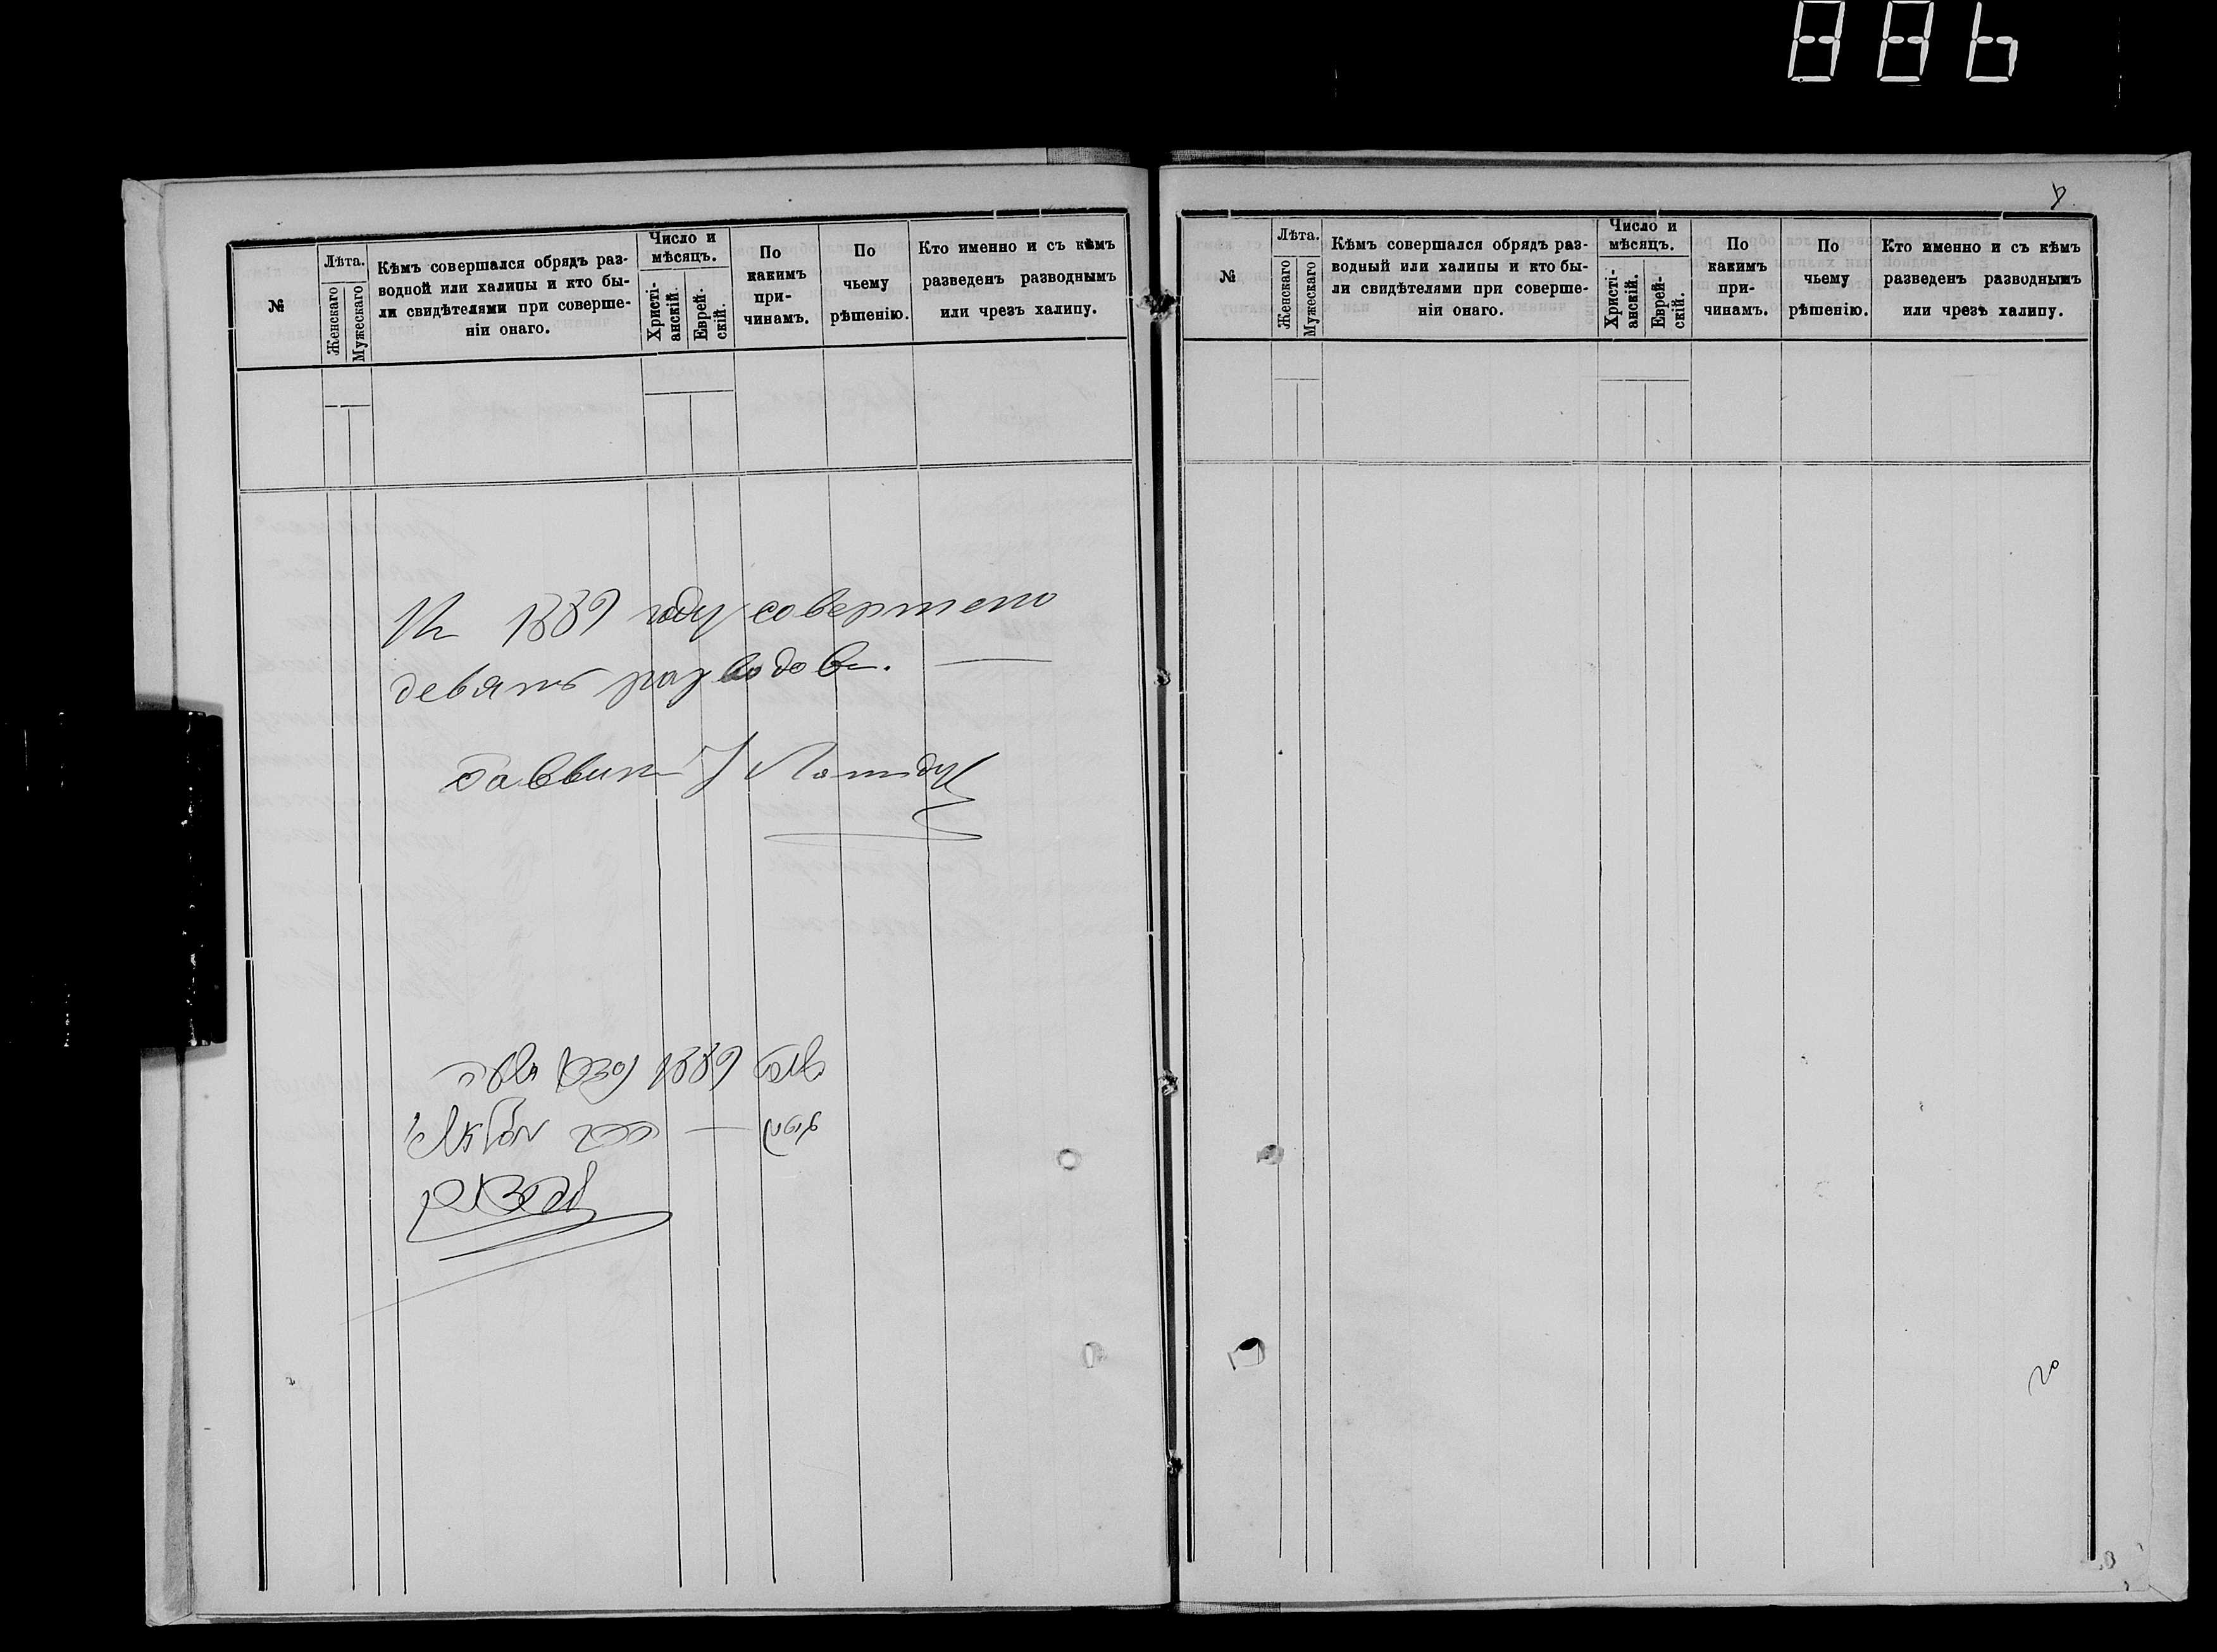 №
Лѣта.
Женскаго
Мужескаго
Кѣмъ совершался обрядъ раз-
водной или халипы и кто бы-
ли свидѣтелями при соверше-
ніи онаго.
Число и
мѣсяцъ.
Христі-
анскій.
Еврей-
скій.
По
какимъ
при-
чинамъ.
По
чьему
рѣшенію.
Кто именно и съ кѣмъ
разведенъ разводнымъ
или чрезъ халипу.
1889 году совершено
девять разводовъ.
Раввинъ
1889
№
Лѣта.
Женскаго
Мужескаго
Кѣмъ совершался обрядъ раз-
водный или халипы и кто бы-
ли свидѣтелями при соверше-
ніи онаго.
Число и
мѣсяцъ.
Христі-
анскій.
Еврей-
скій.
По
какимъ
при-
чинамъ.
По
чьему
рѣшенію.
Кто именно и съ кѣмъ
разведенъ разводнымъ
или чрезъ халипу.